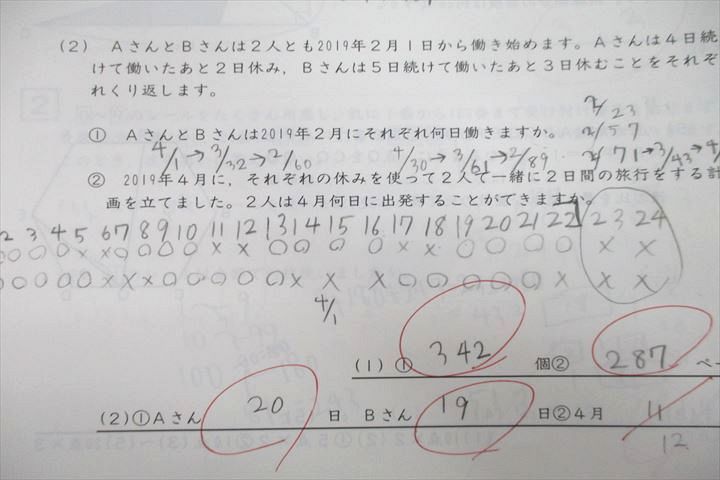 (2) AさんとBさんは2人とも2019年2月1日から働き始めます。Aさんは4日続
けて働いたあと2日休み，Bさんは5日続けて働いたあと3日休むことをそれぞ
れくり返します。
2/23
① AさんとBさんは2019年2月にそれぞれ何日働きますか。 2/57
4/1→3/32→2/60 4/30→3/61→2/89 2/71→3/43→4/
② 2019年4月に，それぞれの休みを使って2人で一緒に2日間の旅行をする計
画を立てました。2人は4月何日に出発することができますか。
2 3 4 5 6 7 8 9 10 11 12 13 14 15 16 17 18 19 20 21 22 23 24
○○○××○○○○××○○○○××○○○○××
○○○○×××○○○○○×××○○○○○×××
4/1
(1) ① 342 個② 287 ペー
(2)①Aさん 20 日 Bさん 19 日②4月 11
12